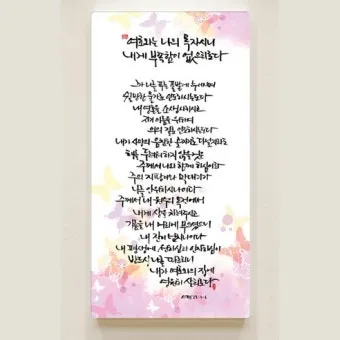 여호와는 나의 목자시니
내게 부족함이 없으리로다
그가 나를 푸른 풀밭에 누이시며
쉴만한 물가로 인도하시는도다
내 영혼을 소생시키시고
자기 이름을 위하여
의의 길로 인도하시는도다
내가 사망의 음침한 골짜기로 다닐지라도
해를 두려워하지 않을 것은
주께서 나와 함께 하심이라
주의 지팡이와 막대기가
나를 안위하시나이다
주께서 내 원수의 목전에서
내게 상을 차려주시고
기름을 내 머리에 부으셨으니
내 잔이 넘치나이다
내 평생에 선하심과 인자하심이
반드시 나를 따르리니
내가 여호와의 집에
영원히 살리로다